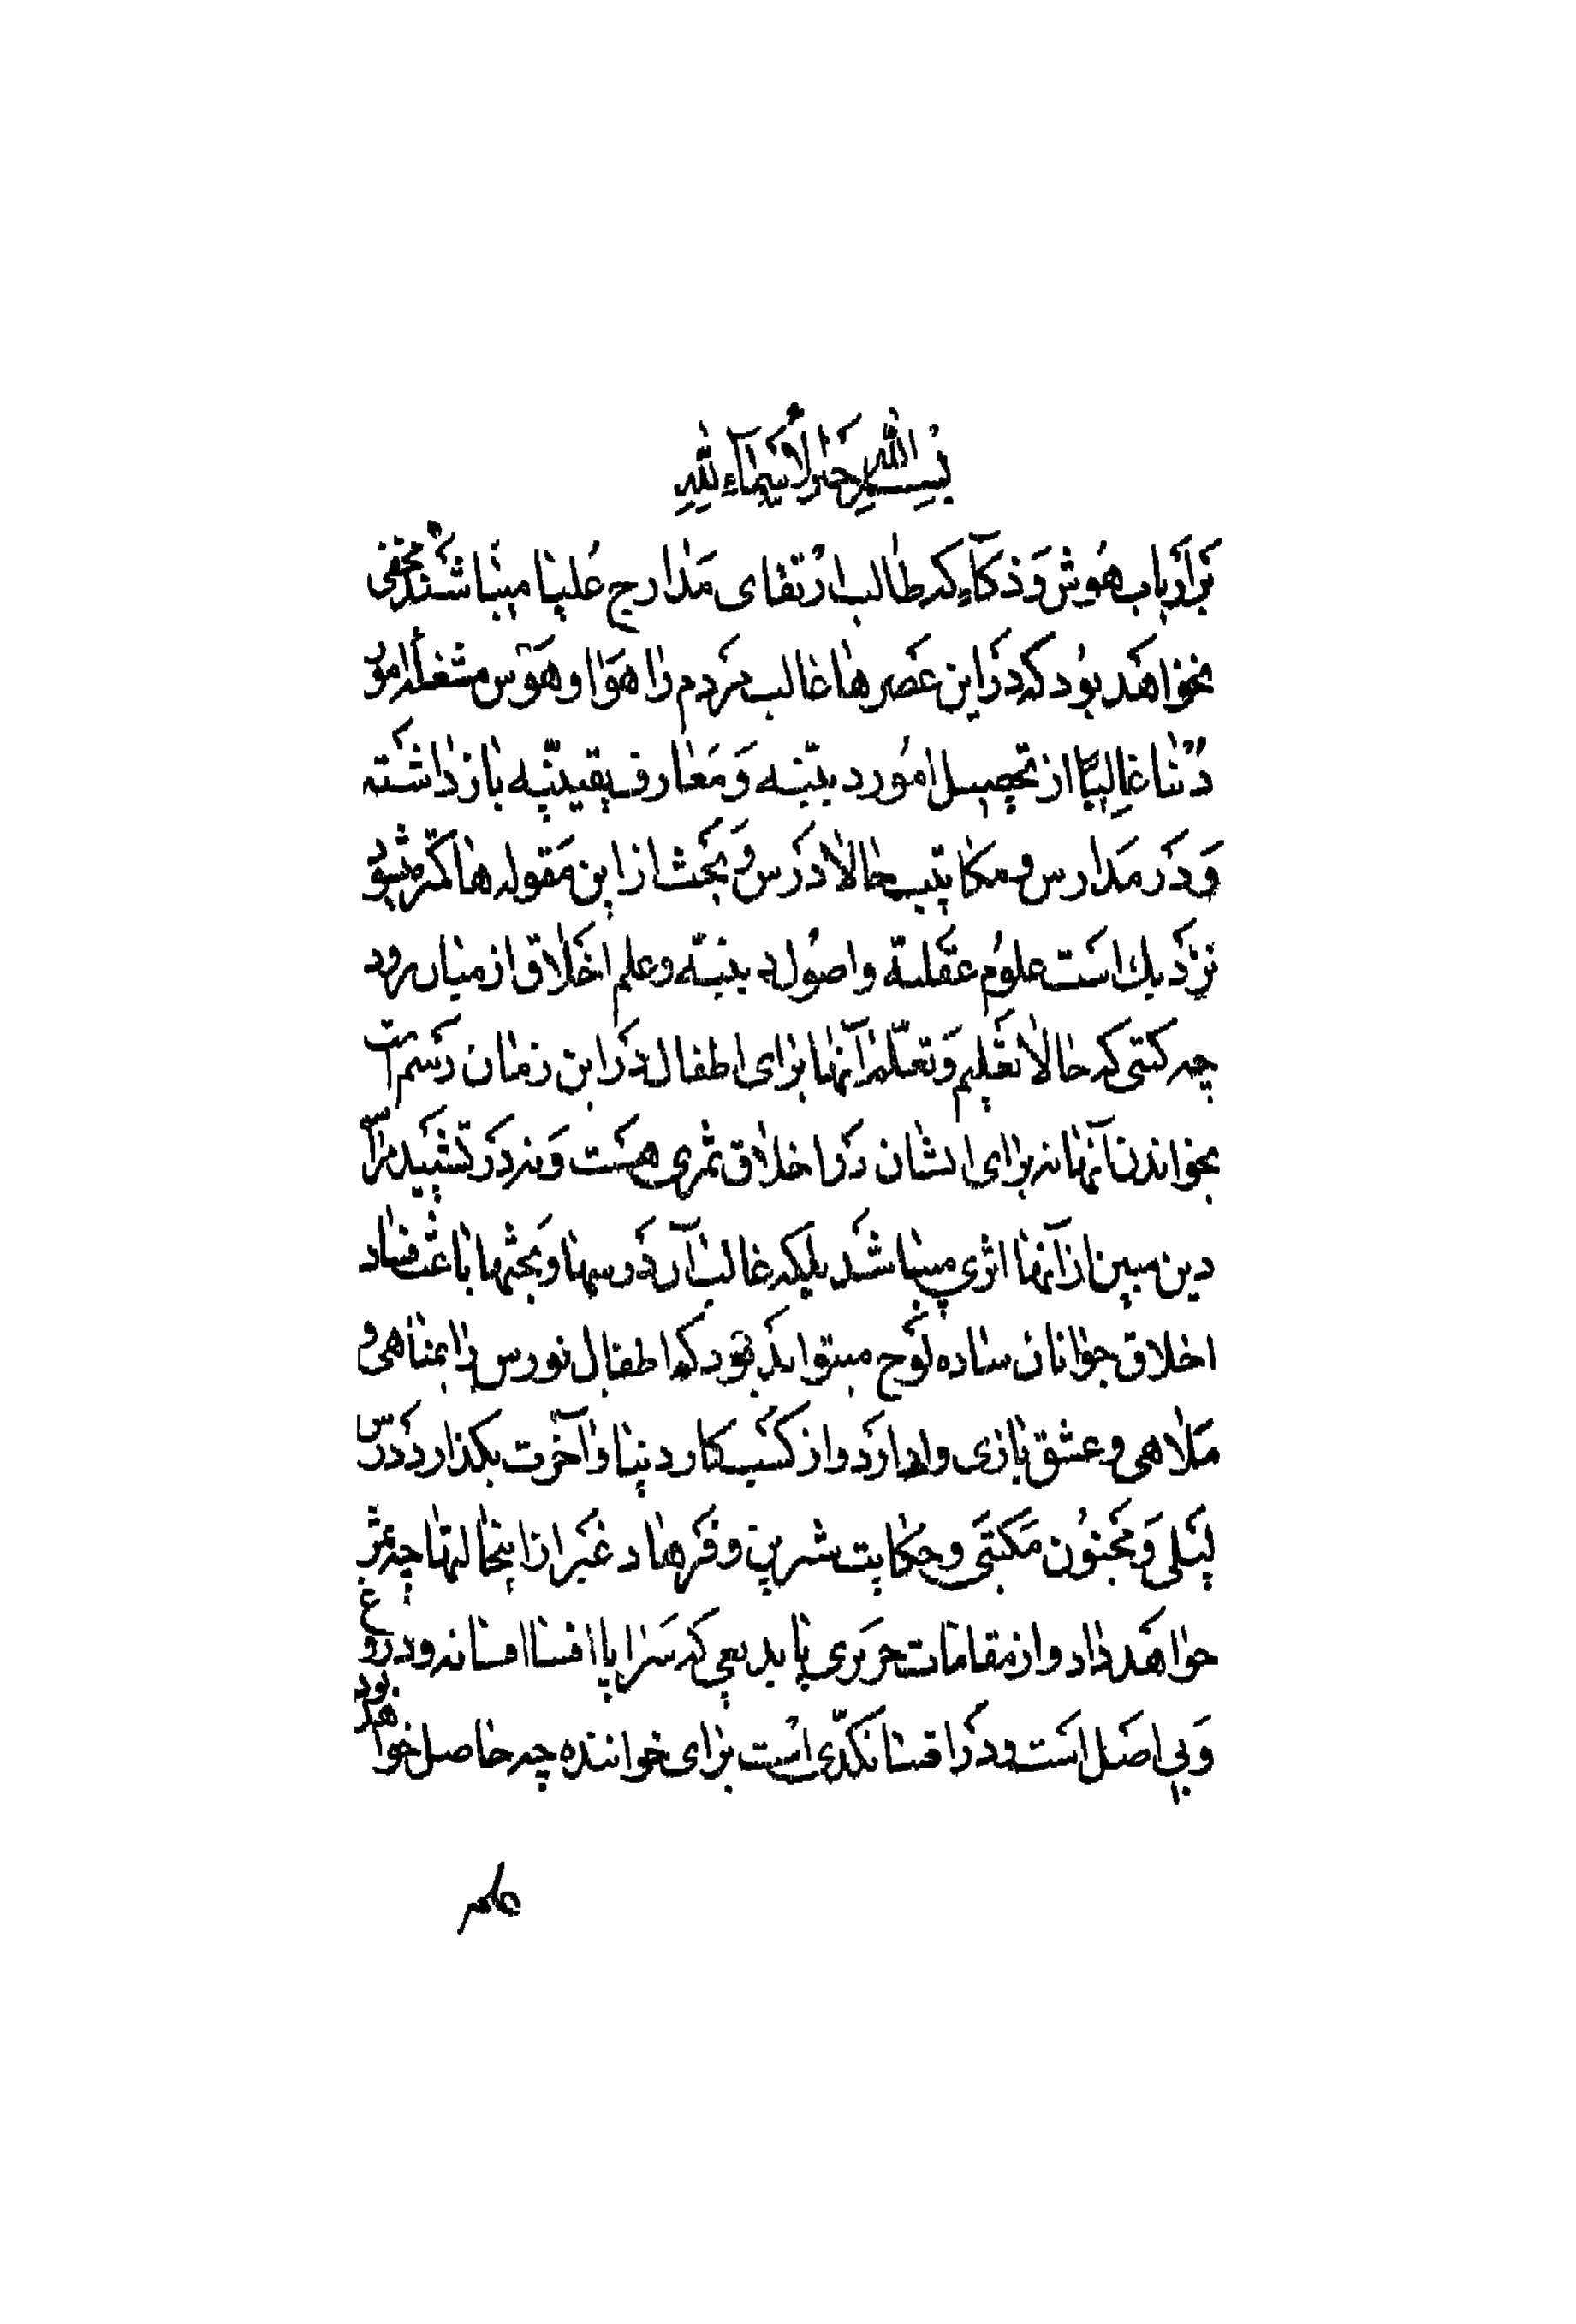 بسم الله خیر الأسماء لله
بر ارباب هوش و ذکاء که طالب ارتقای مدارج علیا میباشند مخفی
نخواهد بود که در این عصرها غالب مردم را هوا و هوس مشغله امور
دنیا غالبا از تحصیل امور دینیه و معارف یقینیه باز داشته
و در مدارس و مکاتیب حالا درس و بحث از این مقوله ها کمتر میشود
نزدیک است علوم عقلیة و اصول دینیه و علم اخلاق از میان رود
چه کتبی که حالا تعلیم و تعلم آنها برای اطفال در این زمان رسم است
بخواندن آنها نه برای ایشان در اخلاق ثمری هست و نه در تشیید مرا
دین مبین از آنها اثری میباشد بلکه غالب آن درسها و بحثها باعث فساد
اخلاق جوانان ساده لوح میتواند بود که اطفال نورس را بمناهی و
ملاهی و عشق بازی وادارد و از کسب کار دنیا و آخرت بگذارد درس
لیلی و مجنون مکتبی و حکایت شرین و فرهاد غیر از اینحالتها چه ثمر
خواهد داد و از مقامات حریری یا بدیعی که سراپا افسا افسانه و دروغ
و بی اصل است و در اقسا نکدّی است برای خواننده چه حاصل خواهد بود